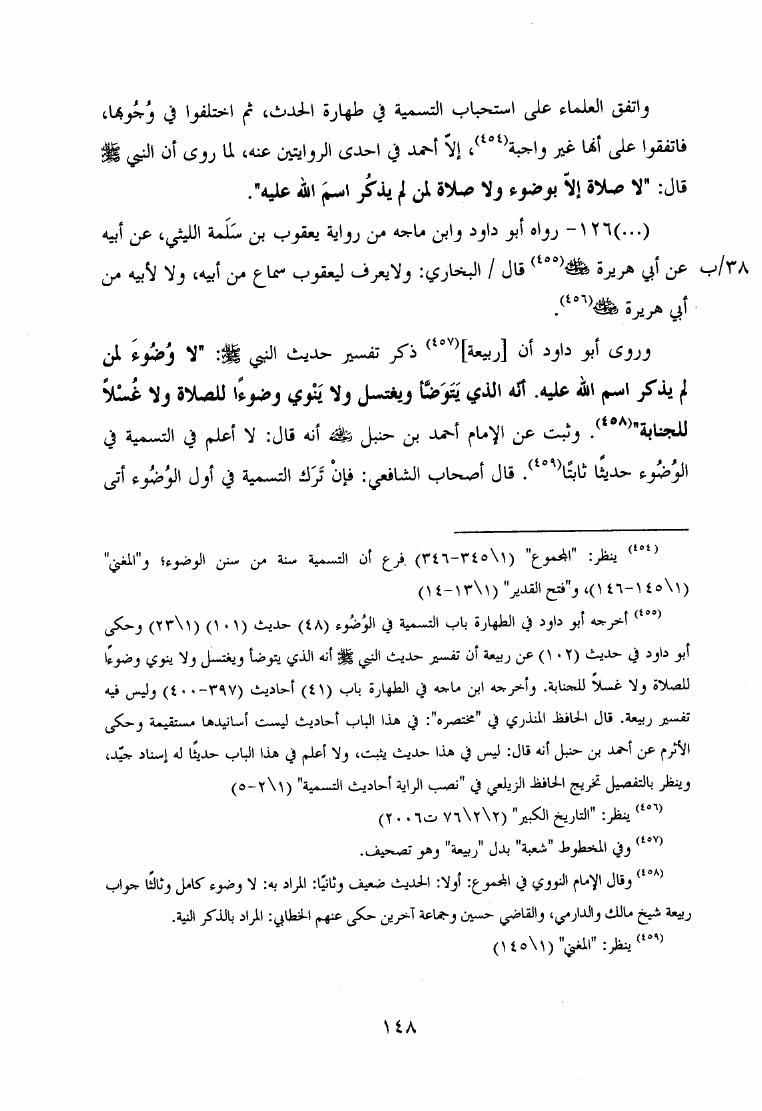 واتفق العلماء على استحباب التسمية في طهارة الحدث، ثم اختلفوا في وُجُوبها،
فاتفقوا على أنها غير واجبة(٤٥٤)، إلاّ أحمد في احدى الروايتين عنه، لما روى أن النبي ﷺ
قال: "لا صلاة إلاّ بوضوء ولا صلاة لمن لم يذكُر اسمَ الله عليه".
(...)١٢٦- رواه أبو داود وابن ماجه من رواية يعقوب بن سَلَمة الليثي، عن أبيه
٣٨/ب عن أبي هريرة ﷺ(٤٥٥) قال / البخاري: ولايعرف ليعقوب سماع من أبيه، ولا لأبيه من
أبي هريرة ﷺ(٤٥٦).
وروى أبو داود أن [ربيعة](٤٥٧) ذكر تفسير حديث النبي ﷺ: "لا وُضُوءَ لمن
لم يذكر اسم الله عليه. أنّه الذي يَتَوَضَّأ ويغتسل ولا يَنْوي وضوءًا للصلاة ولا غُسْلاً
للجنابة"(٤٥٨). وثبت عن الإمام أحمد بن حنبل ﷺ أنه قال: لا أعلم في التسمية في
الوُضُوء حديثًا ثابتًا(٤٥٩). قال أصحاب الشافعي: فإنْ تَرَك التسمية في أول الوُضُوء أتى
(٤٥٤) ينظر: "المجموع" (١\٣٤٥-٣٤٦) فرع أن التسمية سنة من سنن الوضوء؛ و"المغني"
(١\١٤٥-١٤٦)، و"فتح القدير" (١\١٣-١٤)
(٤٥٥) أخرجه أبو داود في الطهارة باب التسمية في الوُضُوء (٤٨) حديث (١٠١) (١\٢٣) وحكى
أبو داود في حديث (١٠٢) عن ربيعة أن تفسير حديث النبي ﷺ أنه الذي يتوضأ ويغتسل ولا ينوي وضوءًا
للصلاة ولا غسلاً للجنابة. وأخرجه ابن ماجه في الطهارة باب (٤١) أحاديث (٣٩٧-٤٠٠) وليس فيه
تفسير ربيعة. قال الحافظ المنذري في "مختصره": في هذا الباب أحاديث ليست أسانيدها مستقيمة وحكى
الأثرم عن أحمد بن حنبل أنه قال: ليس في هذا حديث يثبت، ولا أعلم في هذا الباب حديثًا له إسناد جيّد،
وينظر بالتفصيل تخريج الحافظ الزيلعي في "نصب الراية أحاديث التسمية" (١\٢-٥)
(٤٥٦) ينظر: "التاريخ الكبير" (٢\٢\٧٦ ت٢٠٠٦)
(٤٥٧) وفي المخطوط "شعبة" بدل "ربيعة" وهو تصحيف.
(٤٥٨) وقال الإمام النووي في المجموع: أولا: الحديث ضعيف وثانيًا: المراد به: لا وضوء كامل وثالثًا جواب
ربيعة شيخ مالك والدارمي، والقاضي حسين وجماعة آخرين حكى عنهم الخطابي: المراد بالذكر النية.
(٤٥٩) ينظر: "المغني" (١\١٤٥)
١٤٨